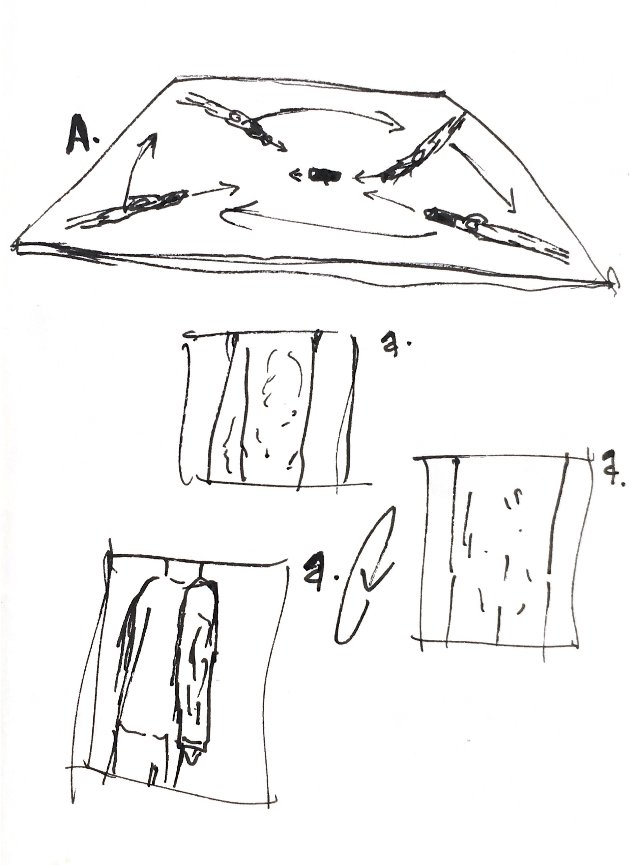 A.
a.
a.
a.